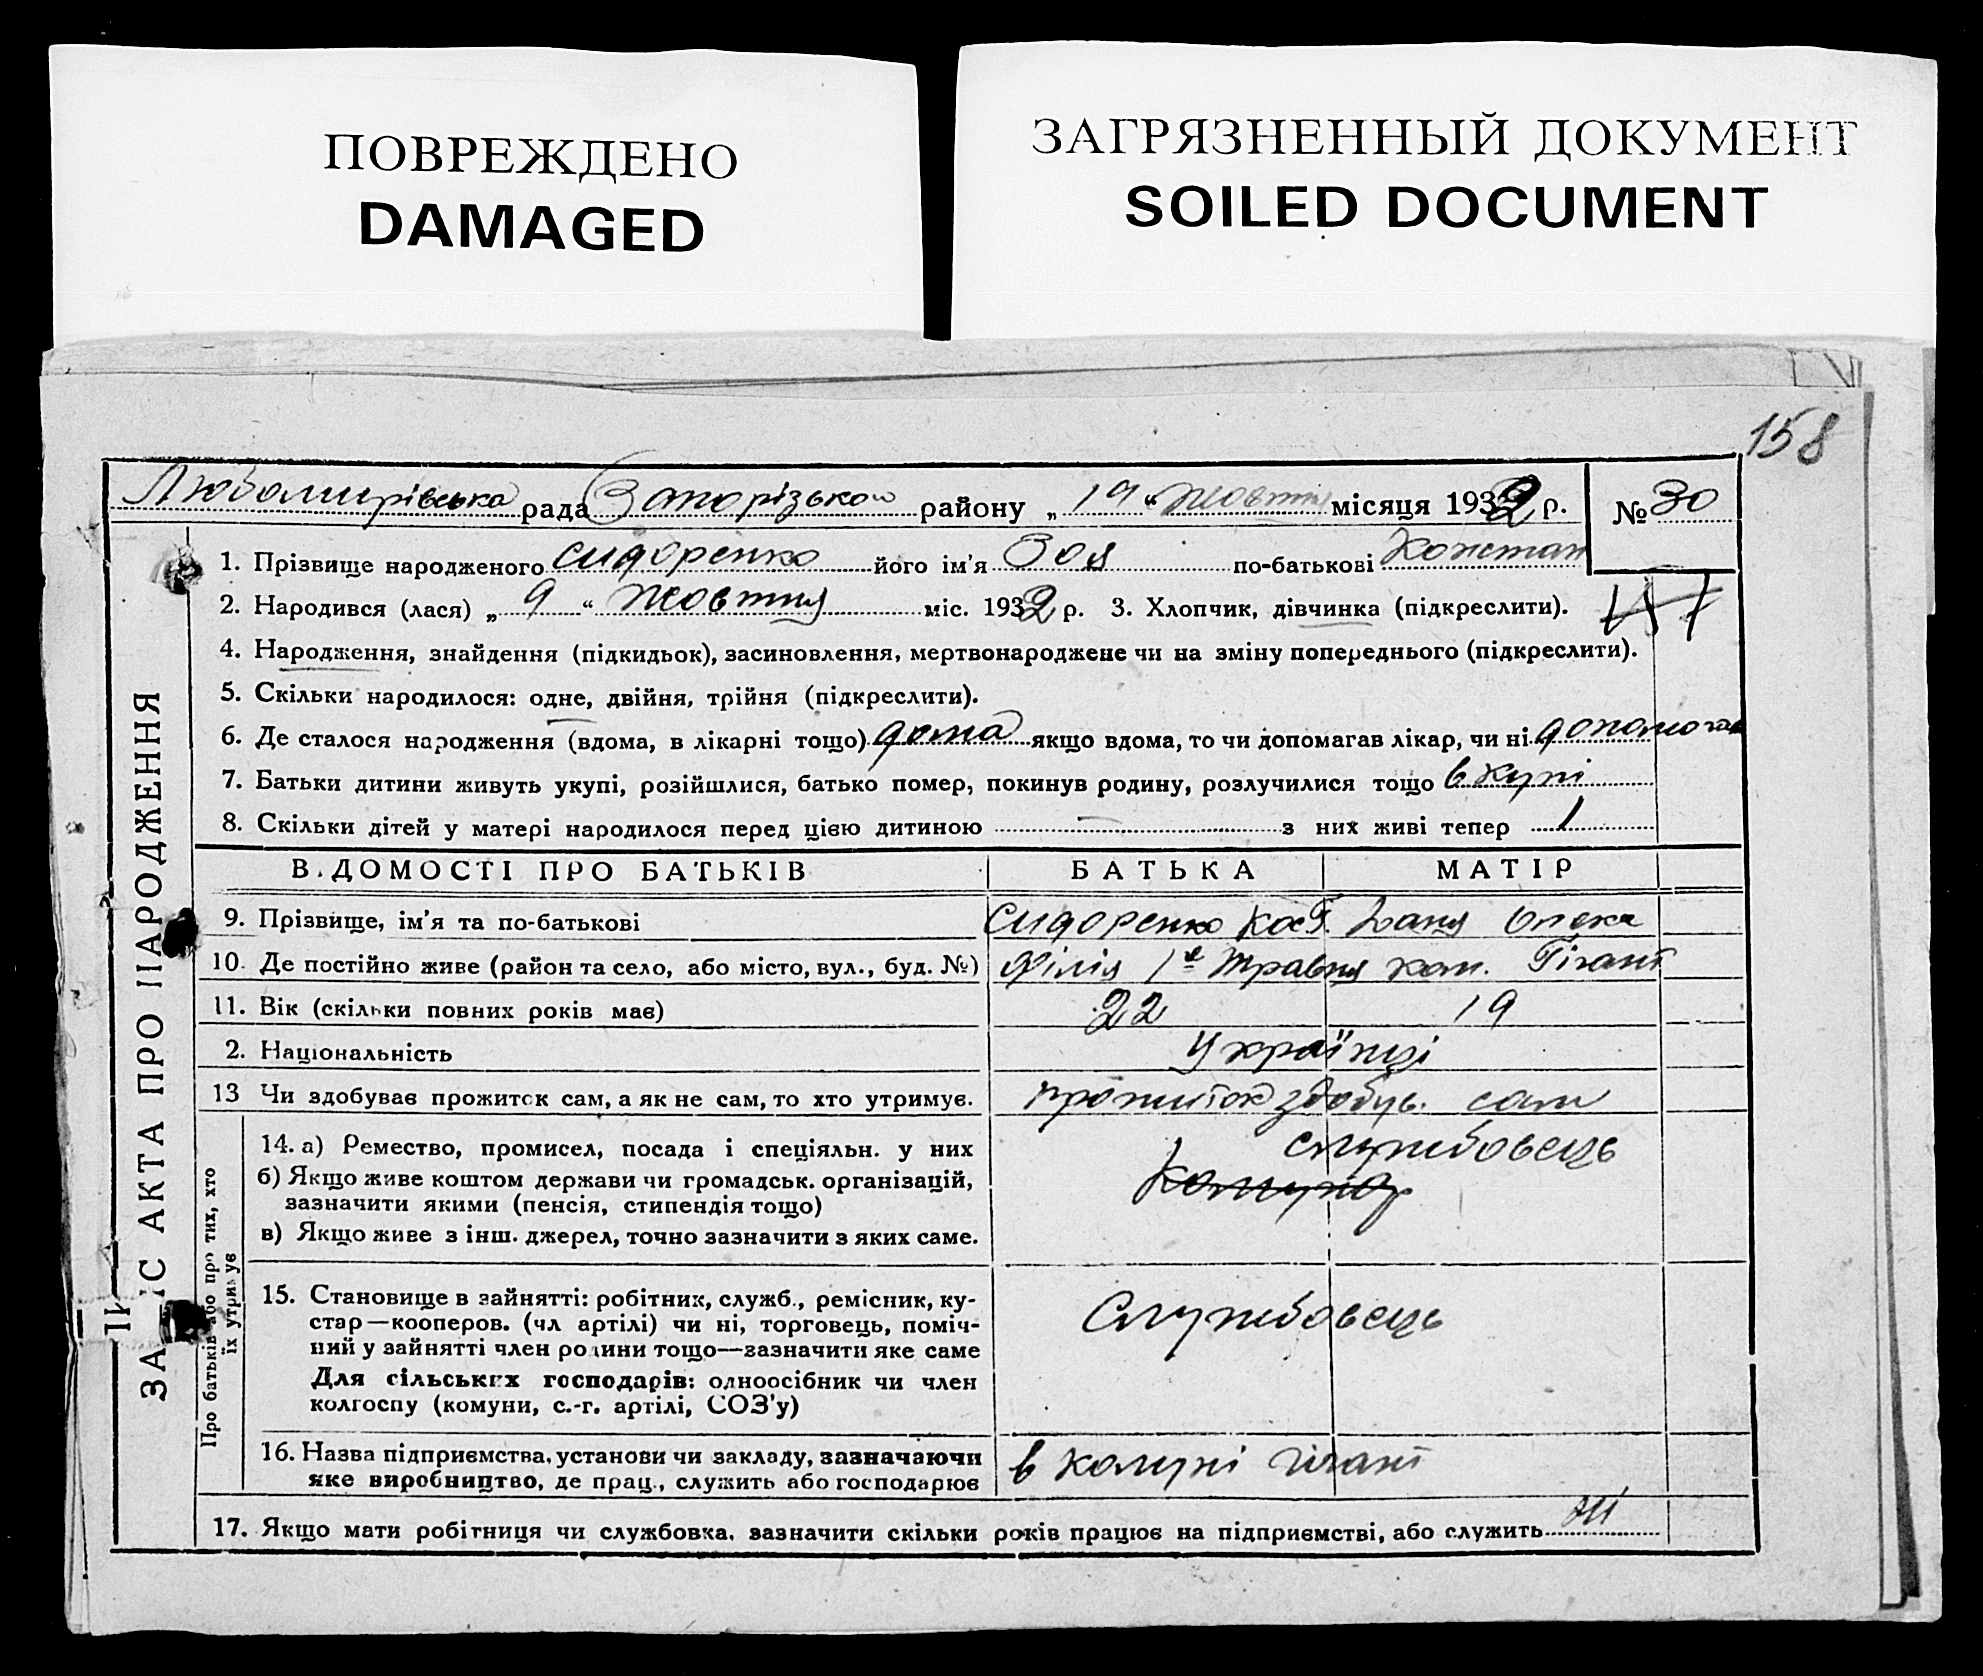 ПОВРЕЖДЕНО
DAMAGED
ЗАГРЯЗНЕННЫЙ ДОКУМЕНТ
SOILED DOCUMENT
158
Любомирівська рада Запорізької району „ 19 “ жовтня місяця 1932 р. № 30
ЗАПИС АКТА ПРО НАРОДЖЕННЯ
1. Прізвище народженого Сидоренко його ім'я Зоя по-батькові Констан
2. Народився (лася) „ 9 “ жовтня міс. 1932 р. 3. Хлопчик, дівчинка (підкреслити).
4. Народження, знайдення (підкидьок), засиновлення, мертвонароджене чи на зміну попереднього (підкреслити).
5. Скільки народилося: одне, двійня, трійня (підкреслити).
6. Де сталося народження (вдома, в лікарні тощо) дома якщо вдома, то чи допомагав лікар, чи ні
7. Батьки дитини живуть укупі, розійшлися, батько помер, покинув родину, розлучилися тощо вкупі
8. Скільки дітей у матері народилося перед цією дитиною — з них живі тепер 1
ВІДОМОСТІ ПРО БАТЬКІВ БАТЬКА МАТІР
9. Прізвище, ім'я та по-батькові Сидоренко Кост.
10. Де постійно живе (район та село, або місто, вул., буд. №) Філія 1е травня ком. Гігант
11. Вік (скільки повних років має) 22 19
2. Національність Українці
13 Чи здобуває прожиток сам, а як не сам, то хто утримує. прожиток здобув. сам
Про батьків або про тих, хто їх утримує
14. а) Ремество, промисел, посада і спеціяльн. у них службовець
б) Якщо живе коштом держави чи громадськ. організацій, зазначити якими (пенсія, стипендія тощо)
в) Якщо живе з інш. джерел, точно зазначити з яких саме.
15. Становище в зайнятті: робітник, служб., ремісник, ку-
стар—кооперов. (чл артілі) чи ні, торговець, поміч- Службовець
ний у зайнятті член родини тощо—зазначити яке саме
Для сільських господарів: одноосібник чи член
колгоспу (комуни, с.-г. артілі, СОЗ'у)
16. Назва підприємства, установи чи закладу, зазначаючи в комуні гігант
яке виробництво, де прац., служить або господарює
17. Якщо мати робітниця чи службовка, зазначити скільки років працює на підприємстві, або служить